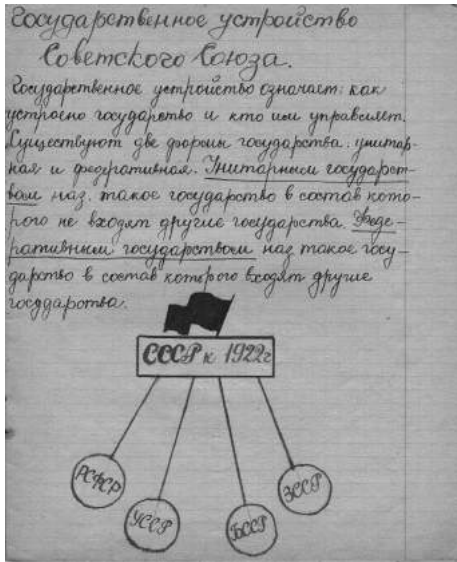 Государственное устройство
Советского Союза.
Государственное устройство означает: как
устроено государство и кто им управляет.
Существуют две формы государства: унитар-
ная и федративная. Унитарным государст-
вом наз. такое государство в состав кото-
рого не входят другие государства. Феде-
ративным государством наз такое госу-
дарство в состав которого входят другие
государства.
СССР к 1922г
РСФСР
УССР
БССР
ЗССР